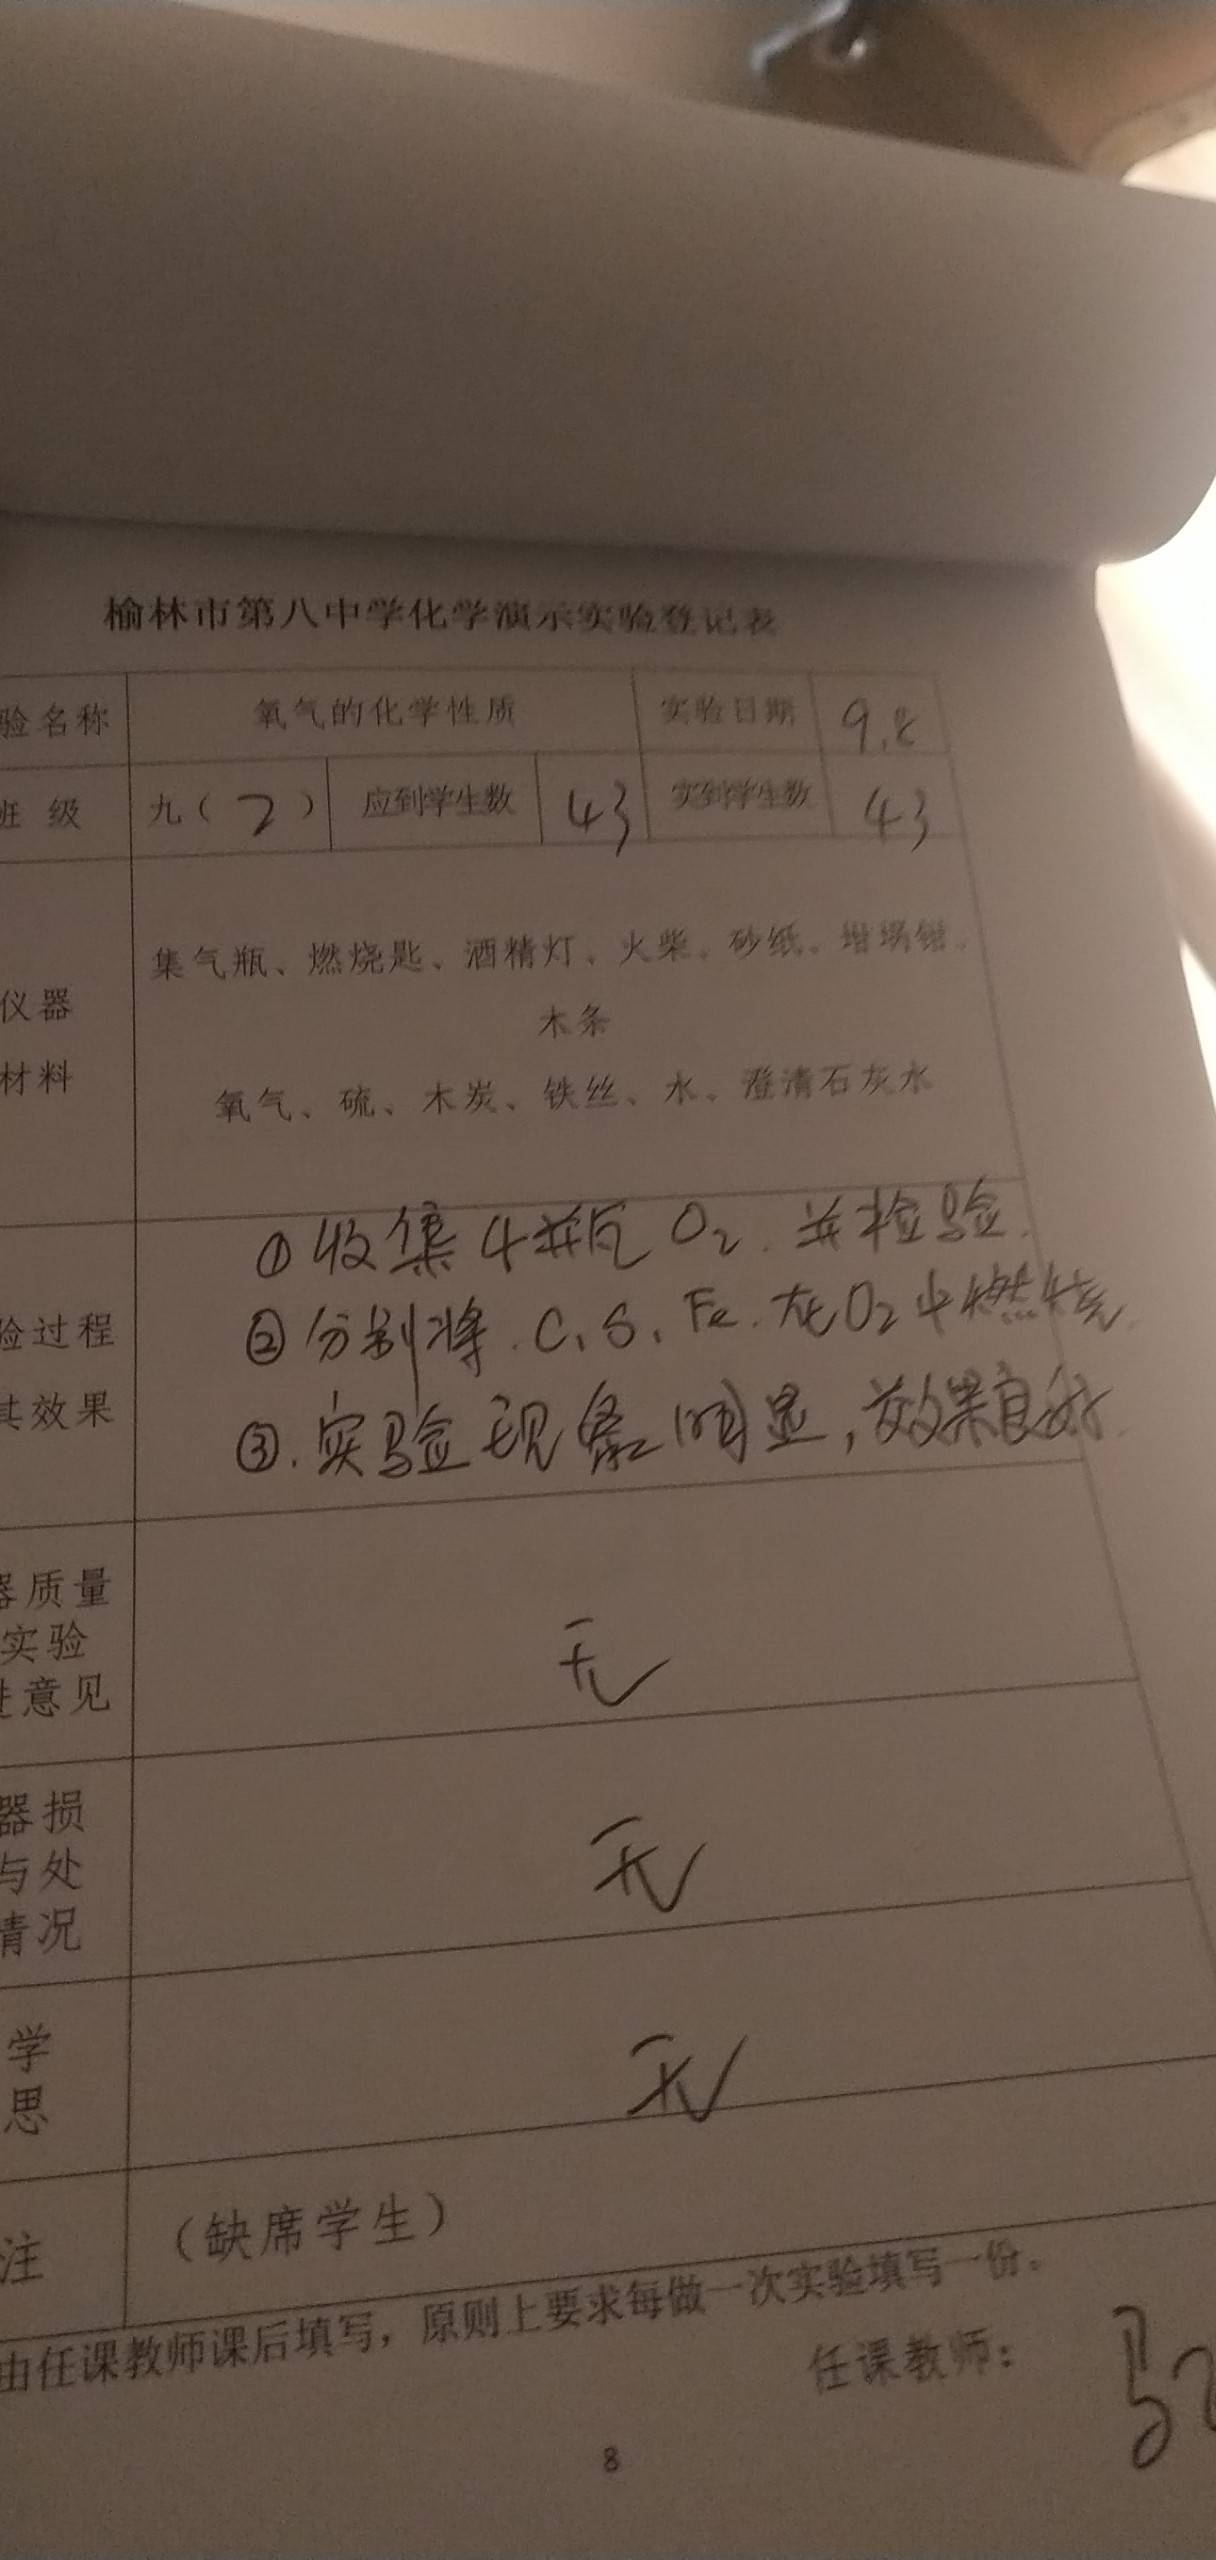 榆林市第八中学化学演示实验登记表
验名称 氧气的化学性质 实验日期
班 级 九（2） 应到学生数 43 实到学生数 43
集气瓶、燃烧匙、酒精灯、火柴、砂纸、坩埚钳、
仪器
木条
材料
氧气、硫、木炭、铁丝、水、澄清石灰水
①收集4瓶O₂.并检验.
验过程
②分别将.C、S、Fe.在O₂中燃烧.
其效果
③.实验现象明显,效果良好.
器质量
实验
无
进意见
器损
与处
无
情况
学
无
思
注
（缺席学生）
由任课教师课后填写，原则上要求每做一次实验填写一份。
任课教师：
8